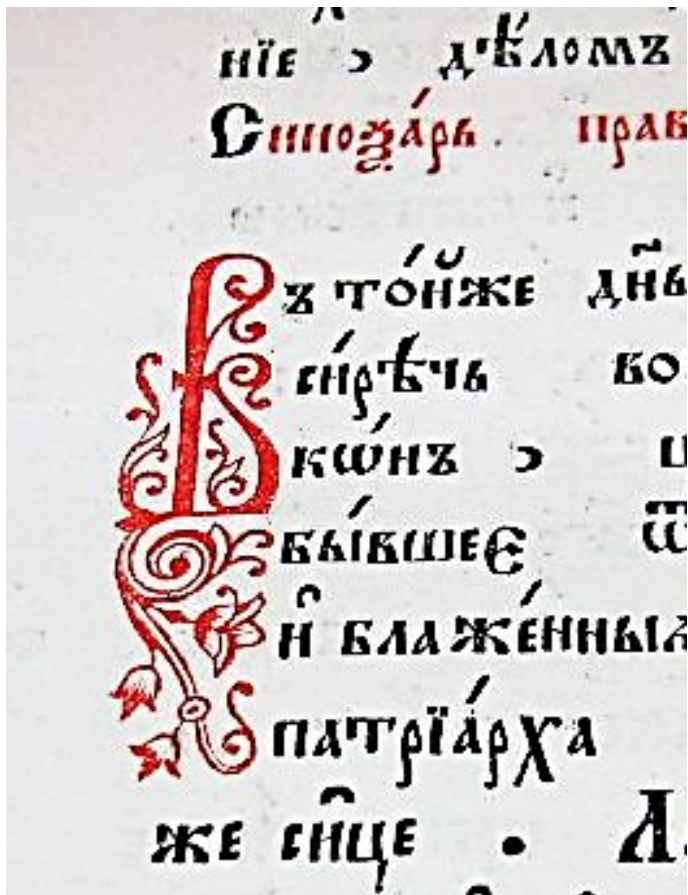 нїе , дѣ́ломъ
Синоѯа́рь . прав
Въ то́йже дн҃ь
си́рѣчь во
ікѡ́нъ ,
бы́вшеє ѿ
и҆ блаже́нныѧ
патрїа́рха
же си̑це . А